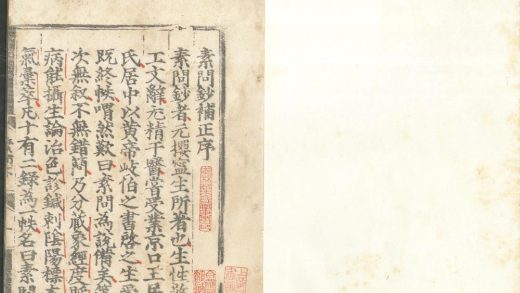 素問鈔補正序
素問鈔者元攖寧生所著也生性
工文辭尤精于醫嘗受業京口王居
氏居中以黄帝岐伯之書啓之生
既終帙喟然歎曰素問為說備矣
次無叙不無錯簡乃分藏象經度
病能攝生論治色診鍼刺陰陽標
氣彙萃凡十有二録為一帙名曰素問